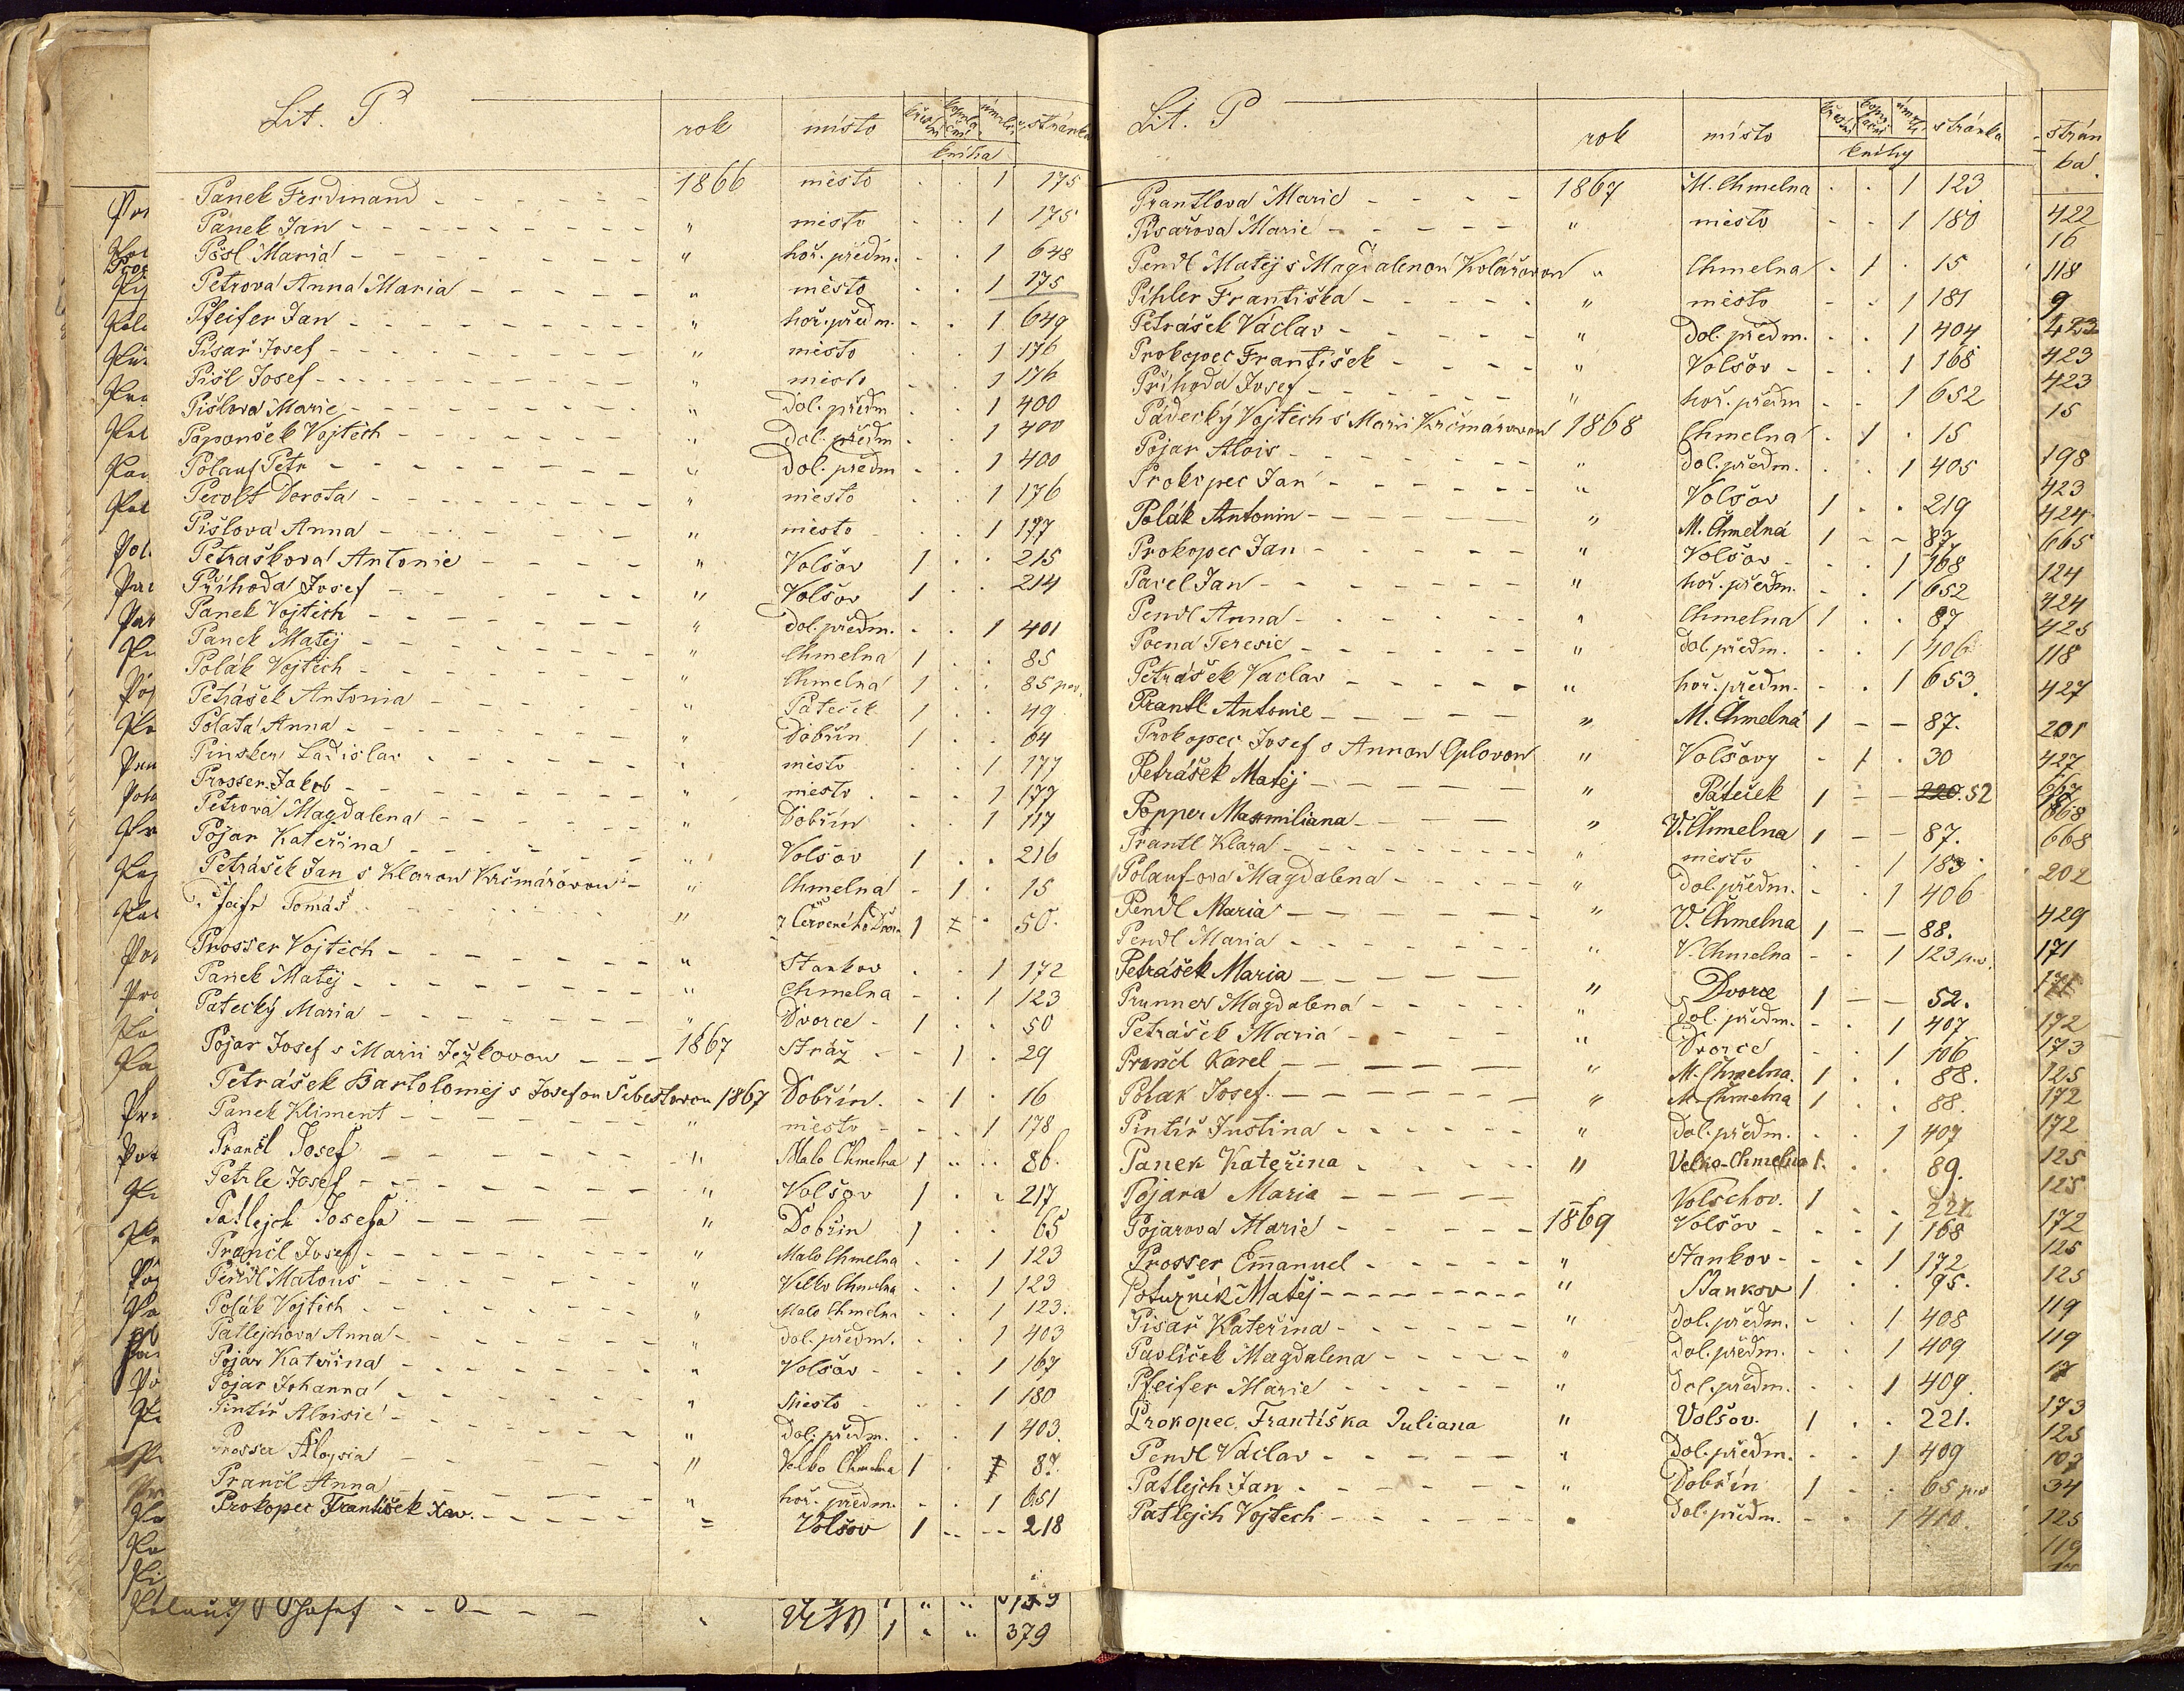 Lit. P. rok místo křestní kopulační úmrtní stránka
kniha
Panek Ferdinand 1866 město . . 1 175
Panek Jan " město . . 1 175
Pösl Maria " hoř. předm. . . 1 648
Petrova Anna Maria " město . . 1 175
Pfeifer Jan " hoř. předm. . . 1 649
Pisař Josef " město . . 1 176
Pišl Josef " město . . 1 176
Pišlova Marie " dol. předm . . 1 400
Papoušek Vojtěch " dol. předm . . 1 400
Polauf Petr " dol. předm . . 1 400
Perolt Dorota " město . . 1 176
Pišlová Anna " město . . 1 177
Petraškova Antonie " Volšov 1 . . 215
Příhoda Josef " Volšov 1 . . 214
Panek Vojtěch " dol. předm. . . 1 401
Panek Matěj " Chmelna 1 . . 85
Polák Vojtěch " Chmelna 1 . . 85 pov.
Petrášek Antonia " Pateček 1 . . 49
Polata Anna " Dobřín 1 . . 64
Pinsker Ladislav " město . . 1 177
Prosser Jakob " město . . 1 177
Petrová Magdalena " Dobřín . . 1 117
Pojar Kateřina " Volšov 1 . . 216
Petrášek Jan s Klarou Krčmářovou " Chmelna - 1 . 15
Tomáš " z Červeného Dvora 1 . 50.
Prosser Vojtěch " Stankov . . 1 172
Panek Matěj " Chmelna - . 1 123
Patecký Maria " Dvorce - 1 . . 50
Pojar Josef s Marii Ježkovou 1867 Stráž - 1 . 29
Petrášek Bartoloměj s Josefou Šebestovou 1867 Dobřín. - 1 . 16
Panek Kliment " město - . . 1 178
Prančl Josef " Malo Chmelna 1 . . 86.
Petrle Josef " Volšov 1 . . 217
Patlejch Josefa " Dobřin 1 . . 65
Prančl Josef " Malo Chmelna . . 1 123
Pendl Matouš " Velko Chmelna . . 1 123
Polák Vojtěch " Malo Chmelna . . 1 123.
Patlejchova Anna " dol. předm. . . 1 403
Pojar Kateřina " Volšov - . . 1 167
Pojar Johanna " Město - . . 1 180
Pintíř Aloisie " dol. předm. . . 1 403.
Prosser Aloysia " Velko Chmelna 1 . 87.
Prančl Anna " hoř. předm. . . 1 651
Prokopec František Xav. = Volšov 1 218
Josef
379
Lit. P rok místo křestní kopulační úmrtní stránka
knihy
Prantlova Marie 1867 M. Chmelna . . 1 123
Pisařova Marie " město - - 1 180
Pendl Matěj s Magdalenou Kolářovou " Chmelna . 1 . 15
Pihler Františka " město - - 1 181
Petrášek Václav " dol. předm. . . 1 404
Prokopec František " Volšov - . . 1 168
Příhoda Josef " hoř. předm - . 1 652
Pádecký Vojtěch s Marii Krčmárovou 1868 Chmelna . 1 . 15
Pojar Alois " dol. předm. . . 1 405
Prokopec Jan " Volšov 1 . . 219
Polák Antonin " M. Chmelná 1 - - 87.
Prokopec Jan " Volšov - . . 1 168
Pavel Jan " hoř. předm. - . 1 652
Pendl Anna " Chmelna 1 . . 87
Pocna Teresie " dol. předm. . . 1 406
Petrášek Vaclav " hoř. předm. - . 1 653
Prantl Antonie " M. Chmelná 1 - - 87.
Prokopec Josef s Annou Oplovou " Volšovy - 1 . 30
Petrášek Matěj " Páteček 1 - - 220. 52
Popper Maxmiliana " V. Chmelna 1 - - 87.
Prantl Klara " město . . 1 183
Polaufova Magdalena " dol. předm. - . 1 406
Pendl Maria " V. Chmelna 1 - - 88.
Pendl Maria " V. Chmelna - - 1 123 pov.
Petrášek Maria " Dvorce 1 - - 52.
Prunner Magdalena " dol. předm. - . 1 407
Petrášek Maria " Dvorce . . 1 106
Prančl Karel " M. Chmelna. 1 . . 88.
Polak Josef. " M. Chmelna 1 . . 88.
Pintíř Justina " dol. předm. . . 1 407
Panek Kateřina " Velko-Chmelna 1 . . 89.
Pojara Maria " Volschov. 1 . . 221
Pojarova Marie 1869 Volšov . . 1 168
Prosser Emanuel " Stankov - . . 1 172
Poturník Matěj " Stankov 1 . . 95.
Pisař Kateřina " dol. předm. . . 1 408
Pavlíček Magdalena " dol. předm. . . 1 409
Pfeifer Marie " dol. předm. . . 1 409.
Prokopec Františka Juliana " Volšov. 1 . . 221.
Pendl Václav " dol. předm. . . 1 409
Patlejch Jan " Dobřín 1 . . 65 pov
Patlejch Vojtech dol. předm. - . 1 410.
strán
ka
422
16
118
9
423
423
423
15
198
423
424
665
124
424
425
118
427
201
427
667
668
668
202
429
171
171
172
173
125
172
172
125
125
172
125
125
119
119
17
173
125
107
34
125
119